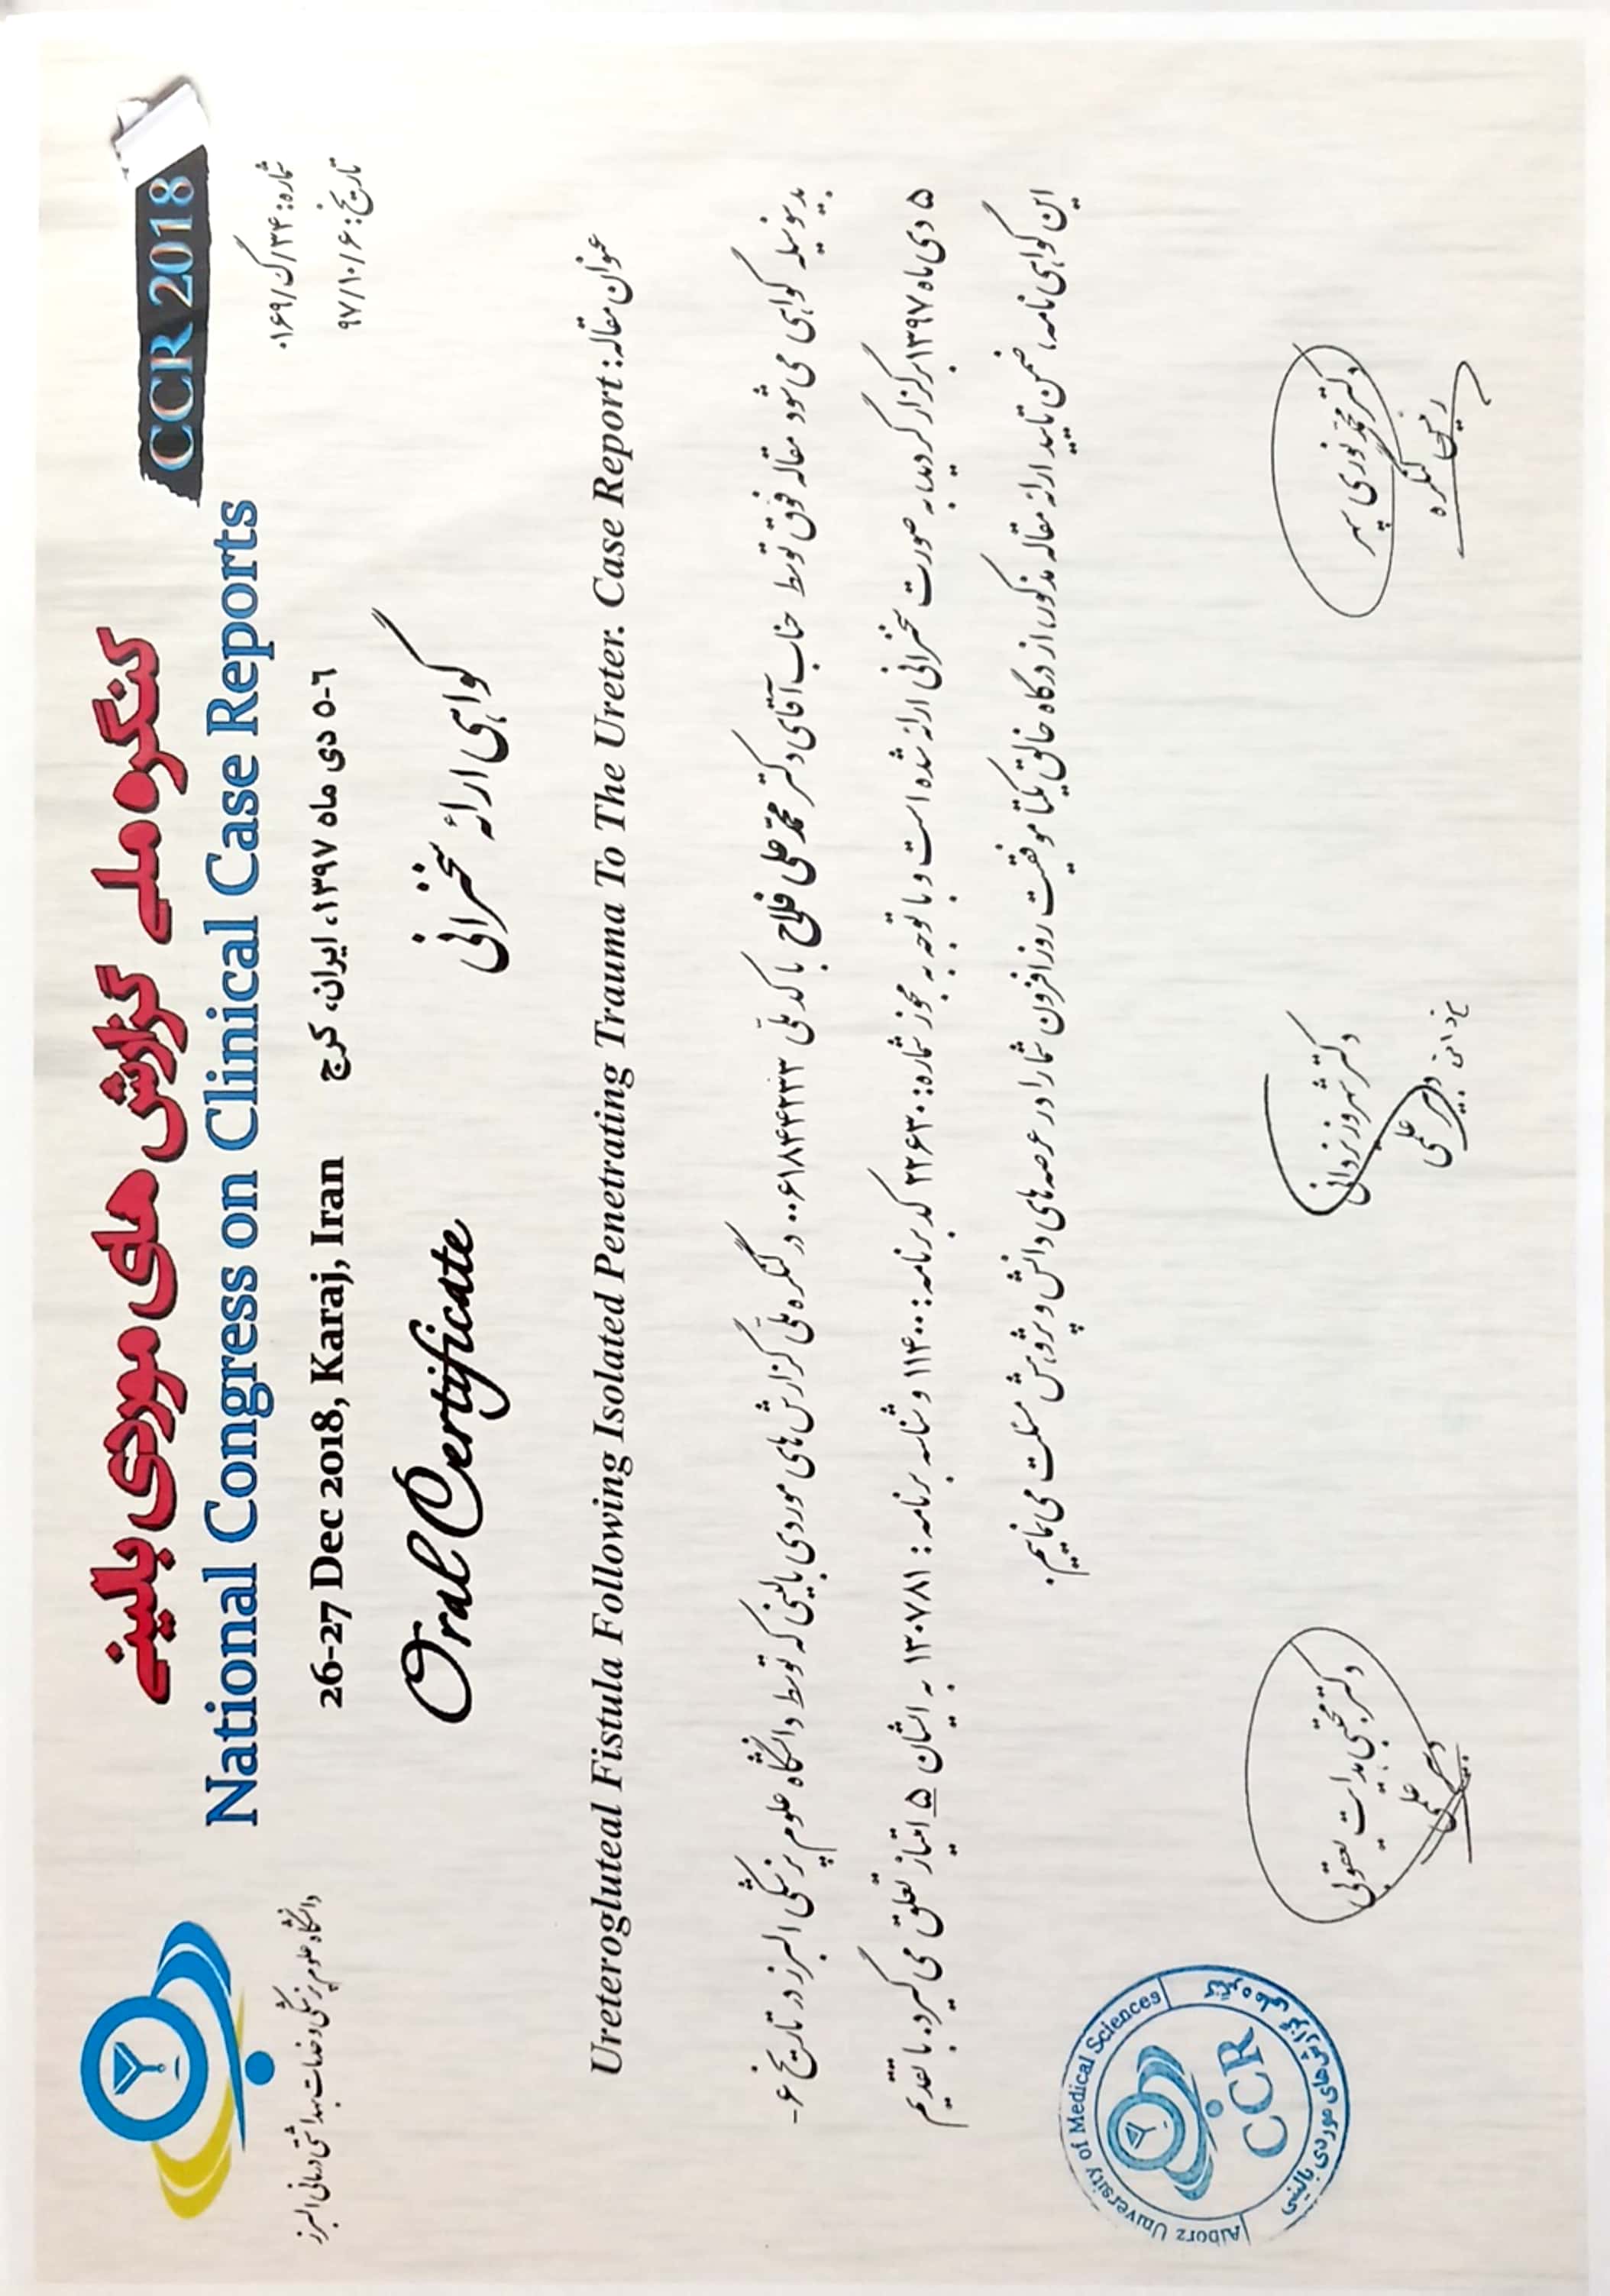 کنگره ملی گزارش های موردی بالینی
CCR 2018
National Congress on Clinical Case Reports
شماره: ۳۴/ک/۰۱۶۹
تاریخ: ۹۷/۱۰/۶
26-27 Dec 2018, Karaj, Iran
۵-۶ دی ماه ۱۳۹۷، ایران، کرج
دانشگاه علوم پزشکی و خدمات بهداشتی درمانی البرز
Oral Certificate
گواهی ارائه سخنرانی
عنوان مقاله: Ureterogluteal Fistula Following Isolated Penetrating Trauma To The Ureter. Case Report
بدینوسیله گواهی می شود مقاله فوق توسط جناب آقای دکتر محمدعلی فلاح با کد ملی ۰۰۶۱۸۴۴۲۳۳ در کنگره ملی گزارش های موردی بالینی که توسط دانشگاه علوم پزشکی البرز در تاریخ ۶-
۵ دی ماه ۱۳۹۷ برگزار گردید، به صورت سخنرانی ارائه شده است و با توجه به مجوز شماره: ۲۲۶۳۰ کد برنامه: ۱۱۴۰۰ و شناسه برنامه: ۱۳۰۷۸۱ به ایشان ۵ امتیاز تعلق می گیرد. با تقدیم
این گواهی نامه، ضمن تایید ارائه مقاله مذکور، از درگاه خالق یکتا موفقیت روزافزون شما را در عرصه های دانش و پژوهش مسئلت می نماییم.
دکتر محمد نوری سپهر
رئیس کنگره
دکتر شهروز یزدانی
دبیر علمی
دکتر مجتبی هدایت یعقوبی
دبیر علمی
Alborz University of Medical Sciences
CCR
کنگره ملی گزارش های موردی بالینی